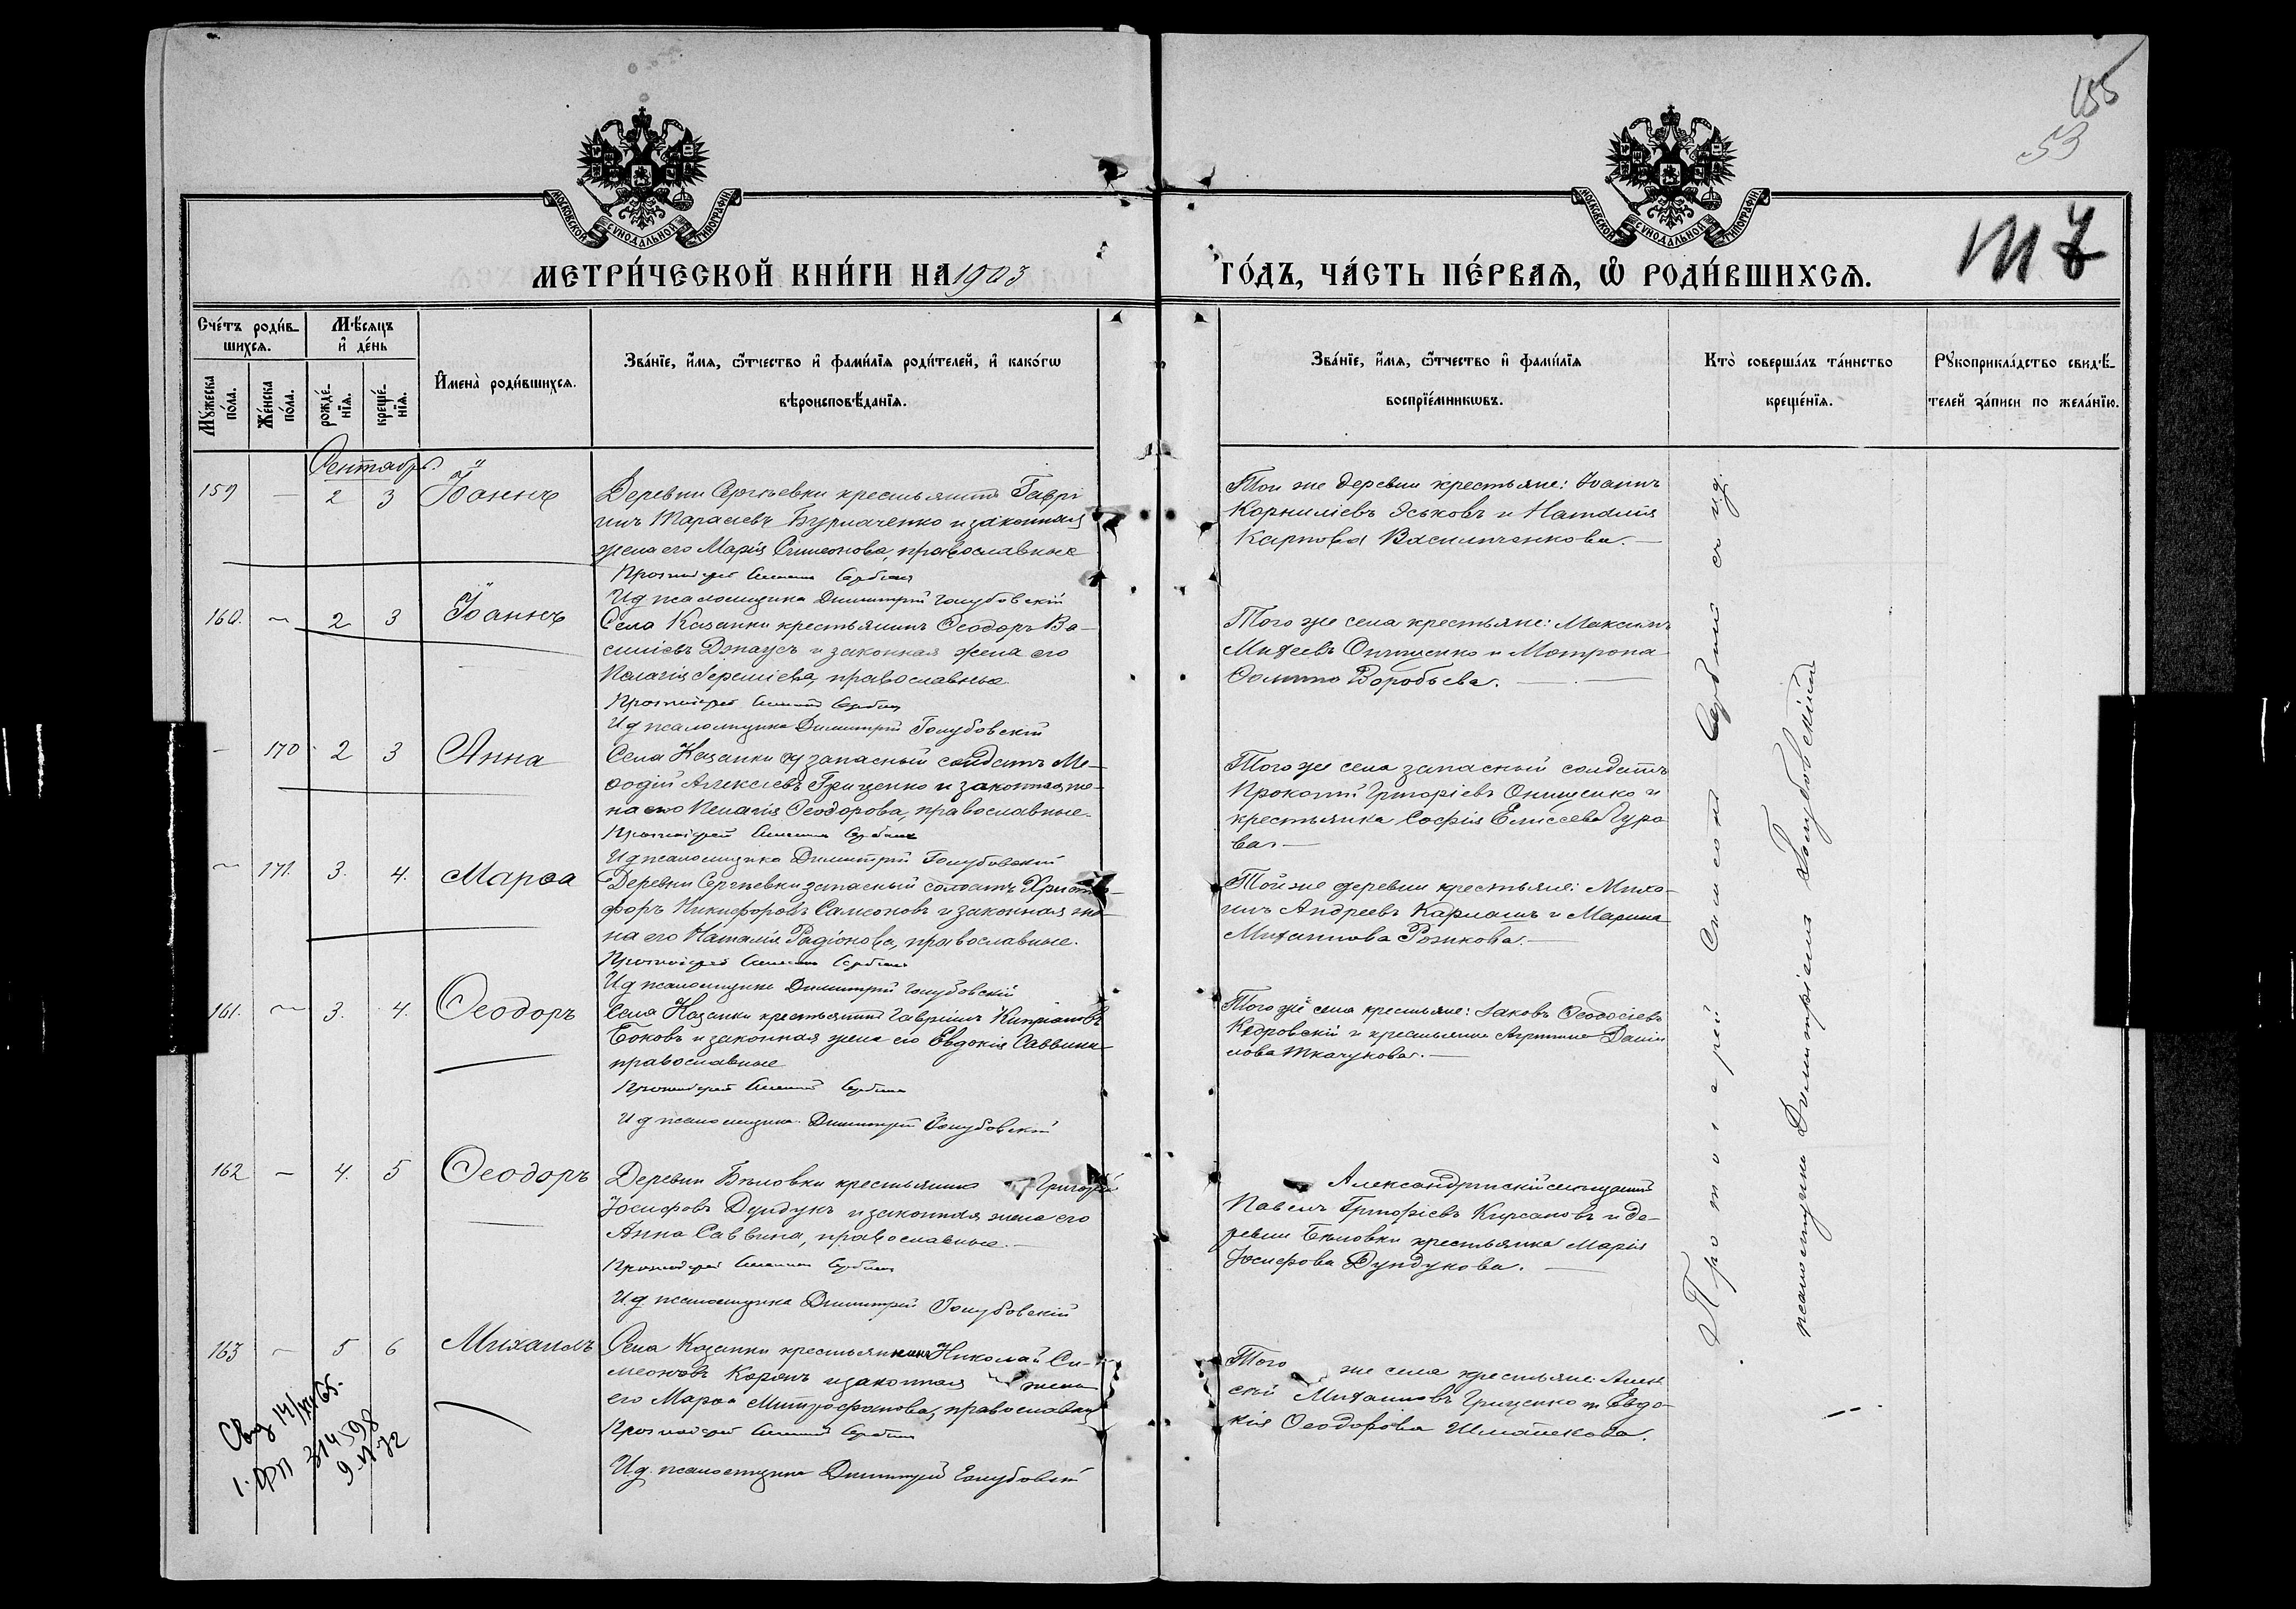 155
53
МОСКОВСКОЙ СѴНОДАЛЬНОЙ ТИПОГРАФІИ
МОСКОВСКОЙ СѴНОДАЛЬНОЙ ТИПОГРАФІИ
МЕТРИ́ЧЕСКОЙ КНИ́ГИ НА 1903
ГО́ДЪ, ЧА́СТЬ ПЕ́РВАЯ, Ѡ҆ РОДИ́ВШИХСЯ.
Сче́тъ роди́в-
шихся.
Мѣ́сяцъ
и҆ де́нь
Мꙋ́жеска по́ла.
Же́нска по́ла.
рожде́-нїя.
креще́-нїя.
И҆мена̀ роди́вшихся.
Зва́нїе, и҆́мя, ѻ҆́тчество и҆ фами́лїя роди́телей, и҆ како́гѡ
вѣроисповѣ́данїя.
Зва́нїе, и҆́мя, ѻ҆́тчество и҆ фами́лїя
воспрїе́мникѡвъ.
Кто̀ соверша́лъ та́инство
креще́нїя.
Рꙋкоприкла́дство свидѣ́-
телей за́писи по жела́нїю.
Сентябрь.
159 — 2 3 Іоаннъ
Деревни Сергѣевки крестьянинъ Гаврі
илъ Тарасіевъ Бурлаченко и законная
жена его Марія Симеонова, православные
Протоіерей Симеонъ
И д псаломщика Димитрій Голубовскій
Той же деревни крестьяне: Іоаннъ
Корниліевъ Эськовъ и Наталія
Карпова Василенкова.
160. — 2 3 Іоаннъ
Села Казанки крестьянинъ Ѳеодоръ Ва-
силіевъ Дтаусъ и законная жена его
Пелагія Іереміева, православные
Протоіерей Симеонъ
И д псаломщика Димитрій Голубовскій
Того же села крестьяне: Максимъ
Михеевъ Онищенко и Матрона
Ѳомина Воробьева.
— 170 2 3 Анна
Села Казанки запасный солдатъ Ме-
ѳодій Алексіевъ Грищенко и законная же-
на его Пелагія Ѳеодорова, православные.
Протоіерей Симеонъ
И д псаломщика Димитрій Голубовскій
Того же села запасный солдатъ
Прокопій Григоріевъ Онищенко и
крестьянка Софія Елисѣева Гуро
ва
— 171. 3. 4. Марѳа
Деревни Сергѣевки запасный солдатъ Христо-
форъ Никифоровъ Самсоновъ и законная же-
на его Наталія Радіонова, православные.
Протоіерей Симеонъ
И д псаломщика Димитрій Голубовскій
Той же деревни крестьяне: Миха-
илъ Андреевъ Кармашъ и Марина
Михаилова Розикова.
161. — 3. 4. Ѳеодоръ
Села Казанки крестьянинъ Гавріилъ Кипріановъ
Боковъ и законная жена его Евдокія Саввина
православные
Протоіерей Симеонъ
И д псаломщика Димитрій Голубовскій
Того же села крестьяне: Іаковъ Ѳеодосіевъ
Кедровскій и крестьянка Агриппина Даніи
лова Ткачукова.
162 — 4. 5 Ѳеодоръ
Деревни Бѣловки крестьянинъ Григорій
Іосифовъ Дундукъ и законная жена его
Анна Саввина, православные.
Протоіерей Симеонъ
И. д. псаломщика Димитрій Голубовскій
Александрійскій мѣщанинъ
Павелъ Григоріевъ Кирсановъ и де-
ревни Бѣловки крестьянка Марія
Іосифова Дундукова.
163 — 5 6 Михаилъ
Села Казанки крестьянинъ Николай Си-
меоновъ Коронъ и законная жена
его Марѳа Митрофанова, православные
Протоіерей Симеонъ
И.д. псаломщика Димитрій Голубовскій
Того же села крестьяне: Алек
сѣй Михаиловъ Грищенко и Евдо-
кія Ѳеодорова Шматекова.
Протоіерей Симеонъ
псаломщика Димитрій Голубовскій
314598
9. VI 72